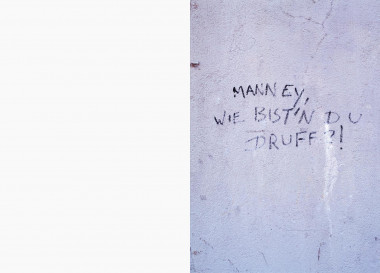 MANNEY,
WIE BIST'N DU
DRUFF?!